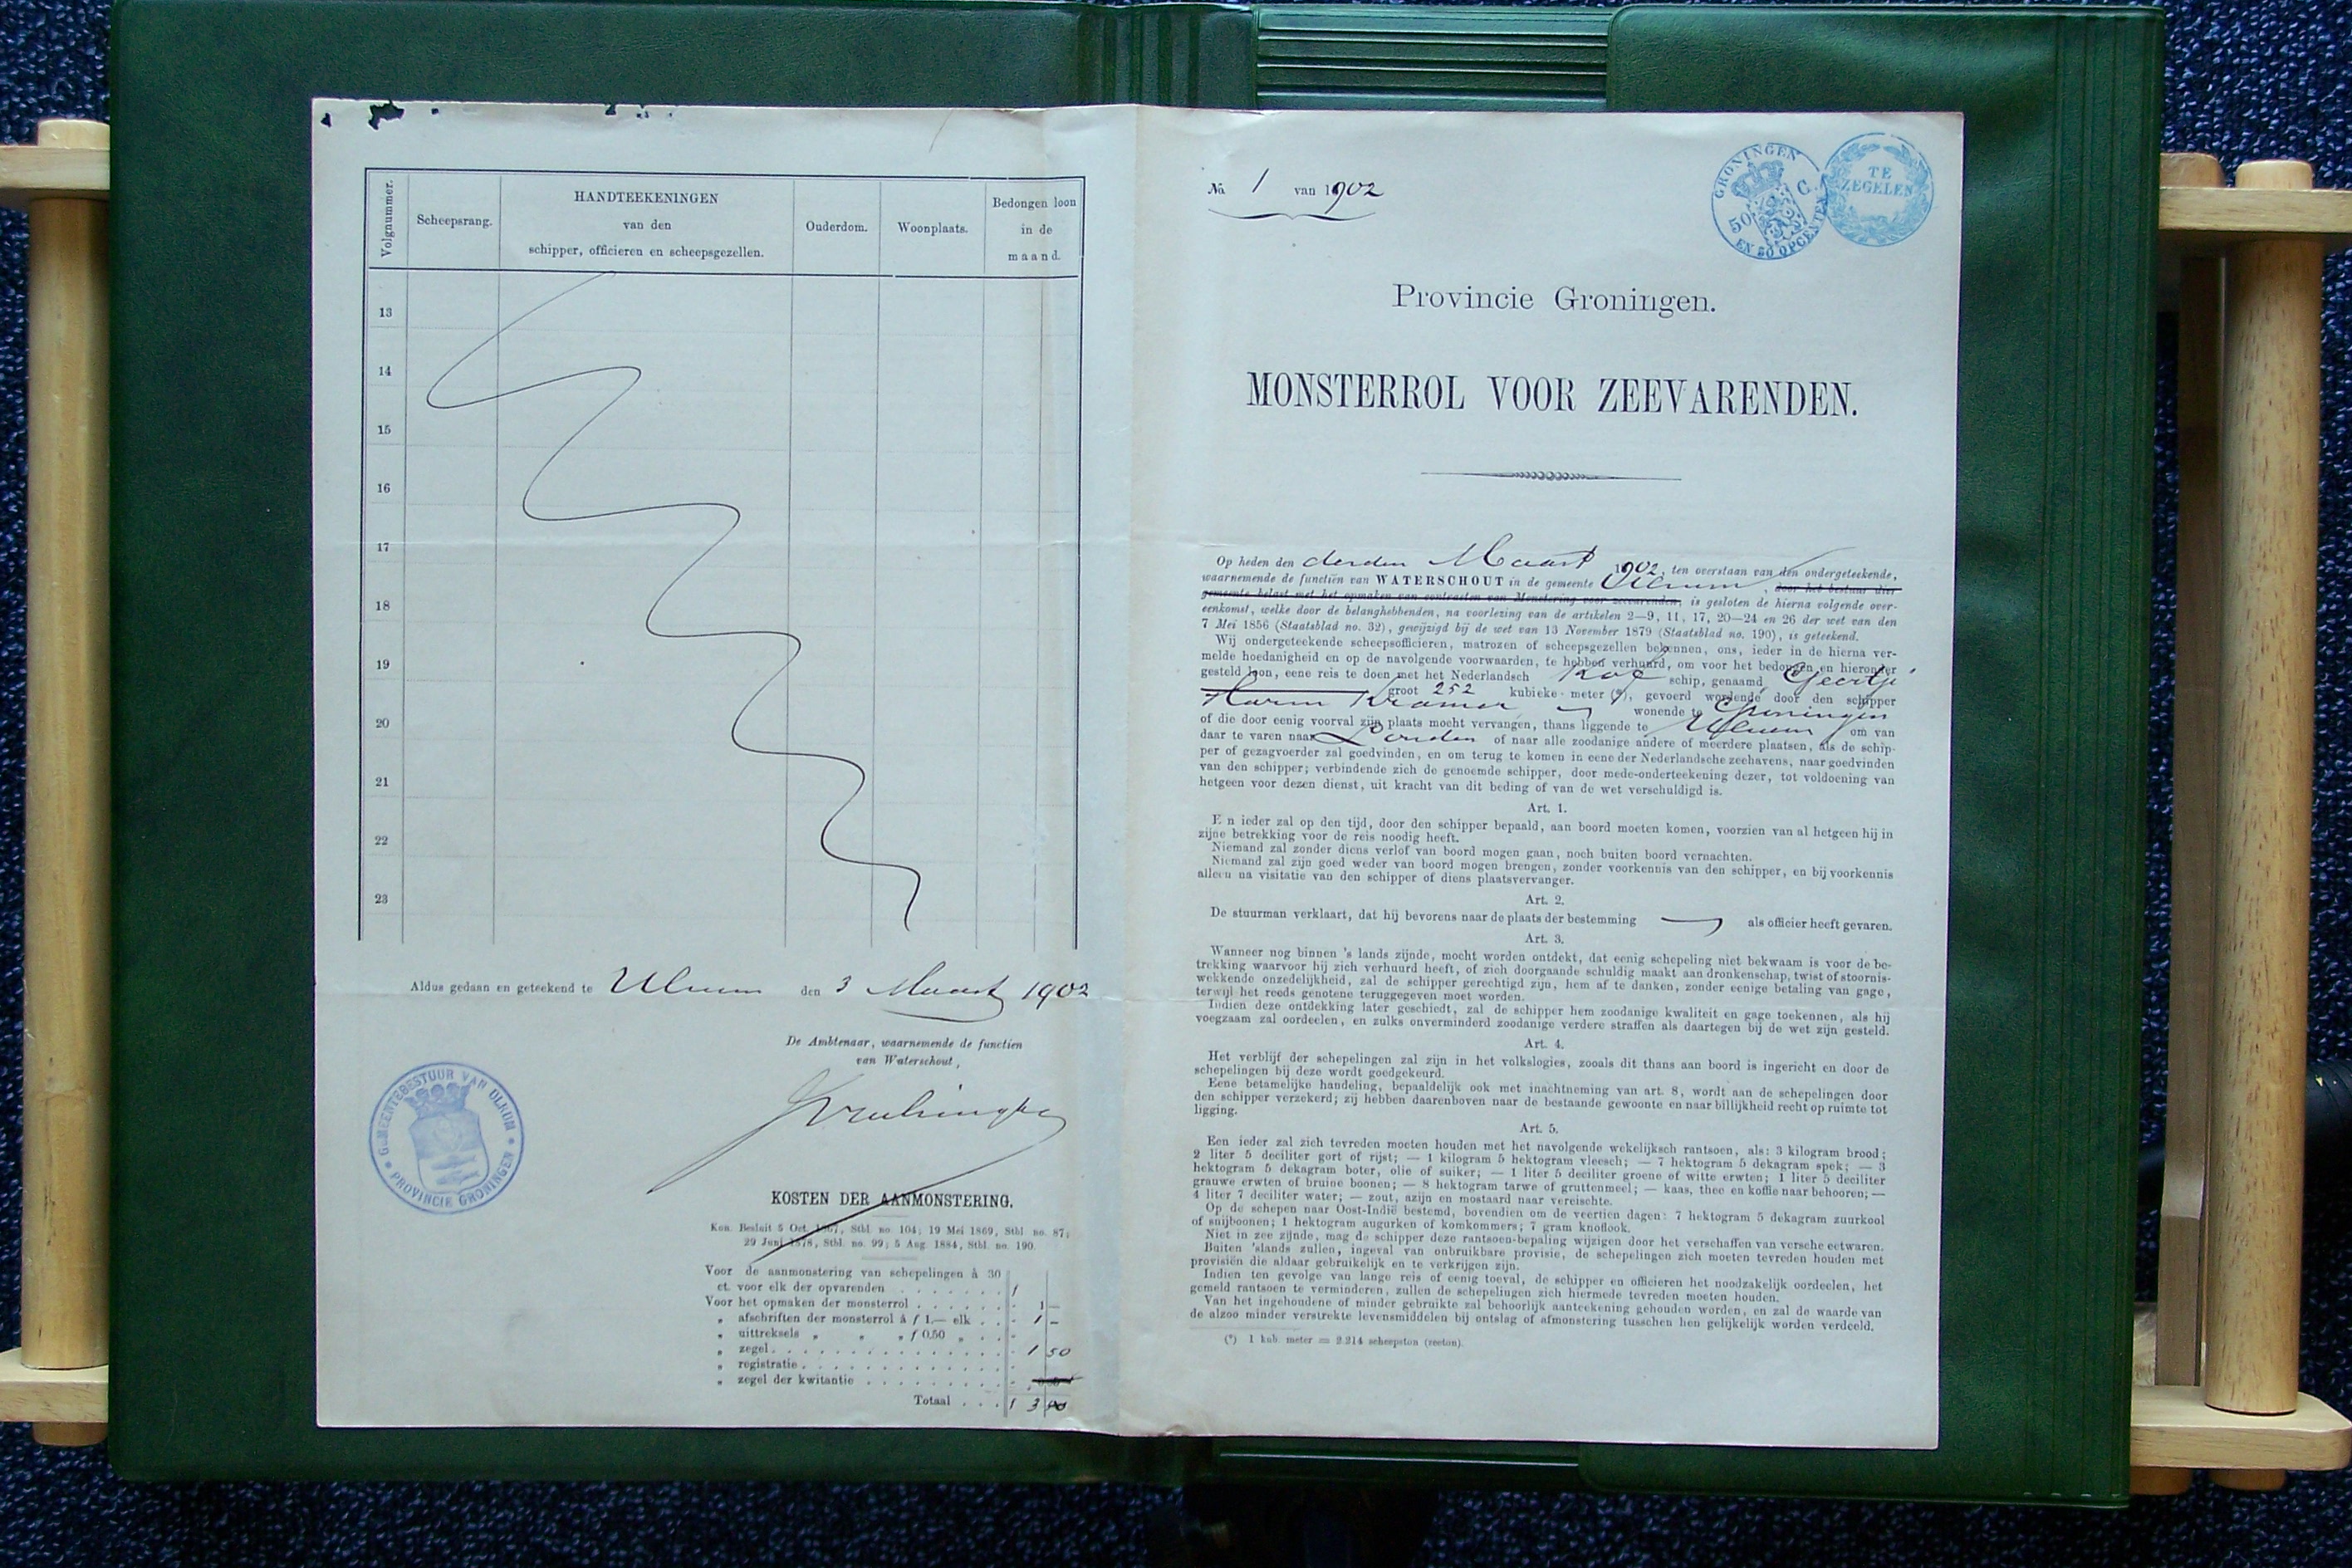 Volgnummer.
Scheepsrang.
HANDTEEKENINGEN
van den
schipper, officieren en scheepsgezellen.
Ouderdom.
Woonplaats.
Bedongen loon
in de
maand.
13
14
15
16
17
18
19
20
21
22
23
Aldus gedaan en geteekend te Ulrum den 3 Maart 1902
De Ambtenaar, waarnemende de functien
van Waterschout,
GEMEENTEBESTUUR VAN ULRUM
PROVINCIE GRONINGEN
KOSTEN DER AANMONSTERING.
Kon. Besluit 5 Oct. 1867, Stbl. no. 104; 19 Mei 1869, Stbl. no. 87;
29 Juni 1878, Stbl. no. 99; 5 Aug. 1884, Stbl. no. 190.
Voor de aanmonstering van schepelingen à 30
ct. voor elk der opvarenden . . . . . . . f
Voor het opmaken der monsterrol . . . . . . - 1 -
„ afschriften der monsterrol à f 1.— elk . . - 1 -
„ uittreksels „ „ „ f 0.50 „ . . -
„ zegel . . . . . . . . . . . . . . . - 1 50
„ registratie . . . . . . . . . . . . . -
„ zegel der kwitantie . . . . . . . . . -
Totaal . . . f 3
No. 1 van 1902
GRONINGEN
50 C.
EN 50 OPCENTEN
TE
ZEGELEN
Provincie Groningen.
MONSTERROL VOOR ZEEVARENDEN.
Op heden den derden Maart 1902, ten overstaan van den ondergeteekende,
waarnemende de functiën van WATERSCHOUT in de gemeente Ulrum, door het bestuur dier
gemeente belast met het opmaken van contracten van Monstering voor zeevarenden, is gesloten de hierna volgende over-
eenkomst, welke door de belanghebbenden, na voorlezing van de artikelen 2—9, 11, 17, 20—24 en 26 der wet van den
7 Mei 1856 (Staatsblad no. 32), gewijzigd bij de wet van 13 November 1879 (Staatsblad no. 190), is geteekend.
Wij ondergeteekende scheepsofficieren, matrozen of scheepsgezellen bekennen, ons, ieder in de hierna ver-
melde hoedanigheid en op de navolgende voorwaarden, te hebben verhuurd, om voor het bedongen en hieronder
gesteld loon, eene reis te doen met het Nederlandsch Kof schip, genaamd Geertje
groot 252 kubieke meter (*), gevoerd wordende door den schipper
Harm Kramer wonende te Groningen
of die door eenig voorval zijn plaats mocht vervangen, thans liggende te Ulrum om van
daar te varen naar Londen of naar alle zoodanige andere of meerdere plaatsen, als de schip-
per of gezagvoerder zal goedvinden, en om terug te komen in eene der Nederlandsche zeehavens, naar goedvinden
van den schipper; verbindende zich de genoemde schipper, door mede-onderteekening dezer, tot voldoening van
hetgeen voor dezen dienst, uit kracht van dit beding of van de wet verschuldigd is.
Art. 1.
E n ieder zal op den tijd, door den schipper bepaald, aan boord moeten komen, voorzien van al hetgeen hij in
zijne betrekking voor de reis noodig heeft.
Niemand zal zonder diens verlof van boord mogen gaan, noch buiten boord vernachten.
Niemand zal zijn goed weder van boord mogen brengen, zonder voorkennis van den schipper, en bij voorkennis
alleen na visitatie van den schipper of diens plaatsvervanger.
Art. 2.
De stuurman verklaart, dat hij bevorens naar de plaats der bestemming als officier heeft gevaren.
Art. 3.
Wanneer nog binnen 's lands zijnde, mocht worden ontdekt, dat eenig schepeling niet bekwaam is voor de be-
trekking waarvoor hij zich verhuurd heeft, of zich doorgaande schuldig maakt aan dronkenschap, twist of stoornis-
wekkende onzedelijkheid, zal de schipper gerechtigd zijn, hem af te danken, zonder eenige betaling van gage,
terwijl het reeds genotene teruggegeven moet worden.
Indien deze ontdekking later geschiedt, zal de schipper hem zoodanige kwaliteit en gage toekennen, als hij
voegzaam zal oordeelen, en zulks onverminderd zoodanige verdere straffen als daartegen bij de wet zijn gesteld.
Art. 4.
Het verblijf der schepelingen zal zijn in het volkslogies, zooals dit thans aan boord is ingericht en door de
schepelingen bij deze wordt goedgekeurd.
Eene betamelijke handeling, bepaaldelijk ook met inachtneming van art. 8, wordt aan de schepelingen door
den schipper verzekerd; zij hebben daarenboven naar de bestaande gewoonte en naar billijkheid recht op ruimte tot
ligging.
Art. 5.
Een ieder zal zich tevreden moeten houden met het navolgende wekelijksch rantsoen, als: 3 kilogram brood;
2 liter 5 deciliter gort of rijst; — 1 kilogram 5 hektogram vleesch; — 7 hektogram 5 dekagram spek; — 3
hektogram 5 dekagram boter, olie of suiker; — 1 liter 5 deciliter groene of witte erwten; 1 liter 5 deciliter
grauwe erwten of bruine boonen; — 8 hektogram tarwe of gruttenmeel; — kaas, thee en koffie naar behooren; —
4 liter 7 deciliter water; — zout, azijn en mostaard naar vereischte.
Op de schepen naar Oost-Indië bestemd, bovendien om de veertien dagen: 7 hektogram 5 dekagram zuurkool
of snijboonen; 1 hektogram augurken of komkommers; 7 gram knoflook.
Niet in zee zijnde, mag de schipper deze rantsoen-bepaling wijzigen door het verschaffen van versche eetwaren.
Buiten 'slands zullen, ingeval van onbruikbare provisie, de schepelingen zich moeten tevreden houden met
provisiën die aldaar gebruikelijk en te verkrijgen zijn.
Indien ten gevolge van lange reis of eenig toeval, de schipper en officieren het noodzakelijk oordeelen, het
gemeld rantsoen te verminderen, zullen de schepelingen zich hiermede tevreden moeten houden.
Van het ingehoudene of minder gebruikte zal behoorlijk aanteekening gehouden worden, en zal de waarde van
de alzoo minder verstrekte levensmiddelen bij ontslag of afmonstering tusschen hen gelijkelijk worden verdeeld.
(*) 1 kub. meter = 2.214 scheepston (reeton).